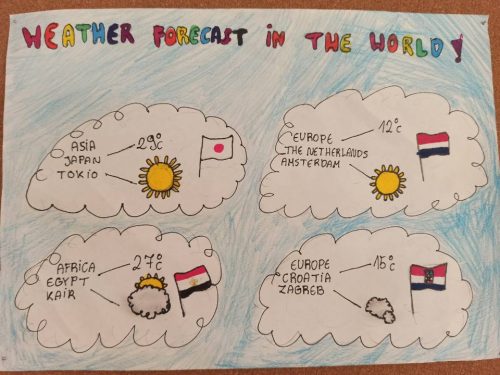 WEATHER FORECAST IN THE WORLD!
ASIA
JAPAN
TOKIO
29°C
EUROPE
THE NETHERLANDS
AMSTERDAM
12°C
AFRICA
EGYPT
KAIR
27°C
EUROPE
CROATIA
ZAGREB
15°C